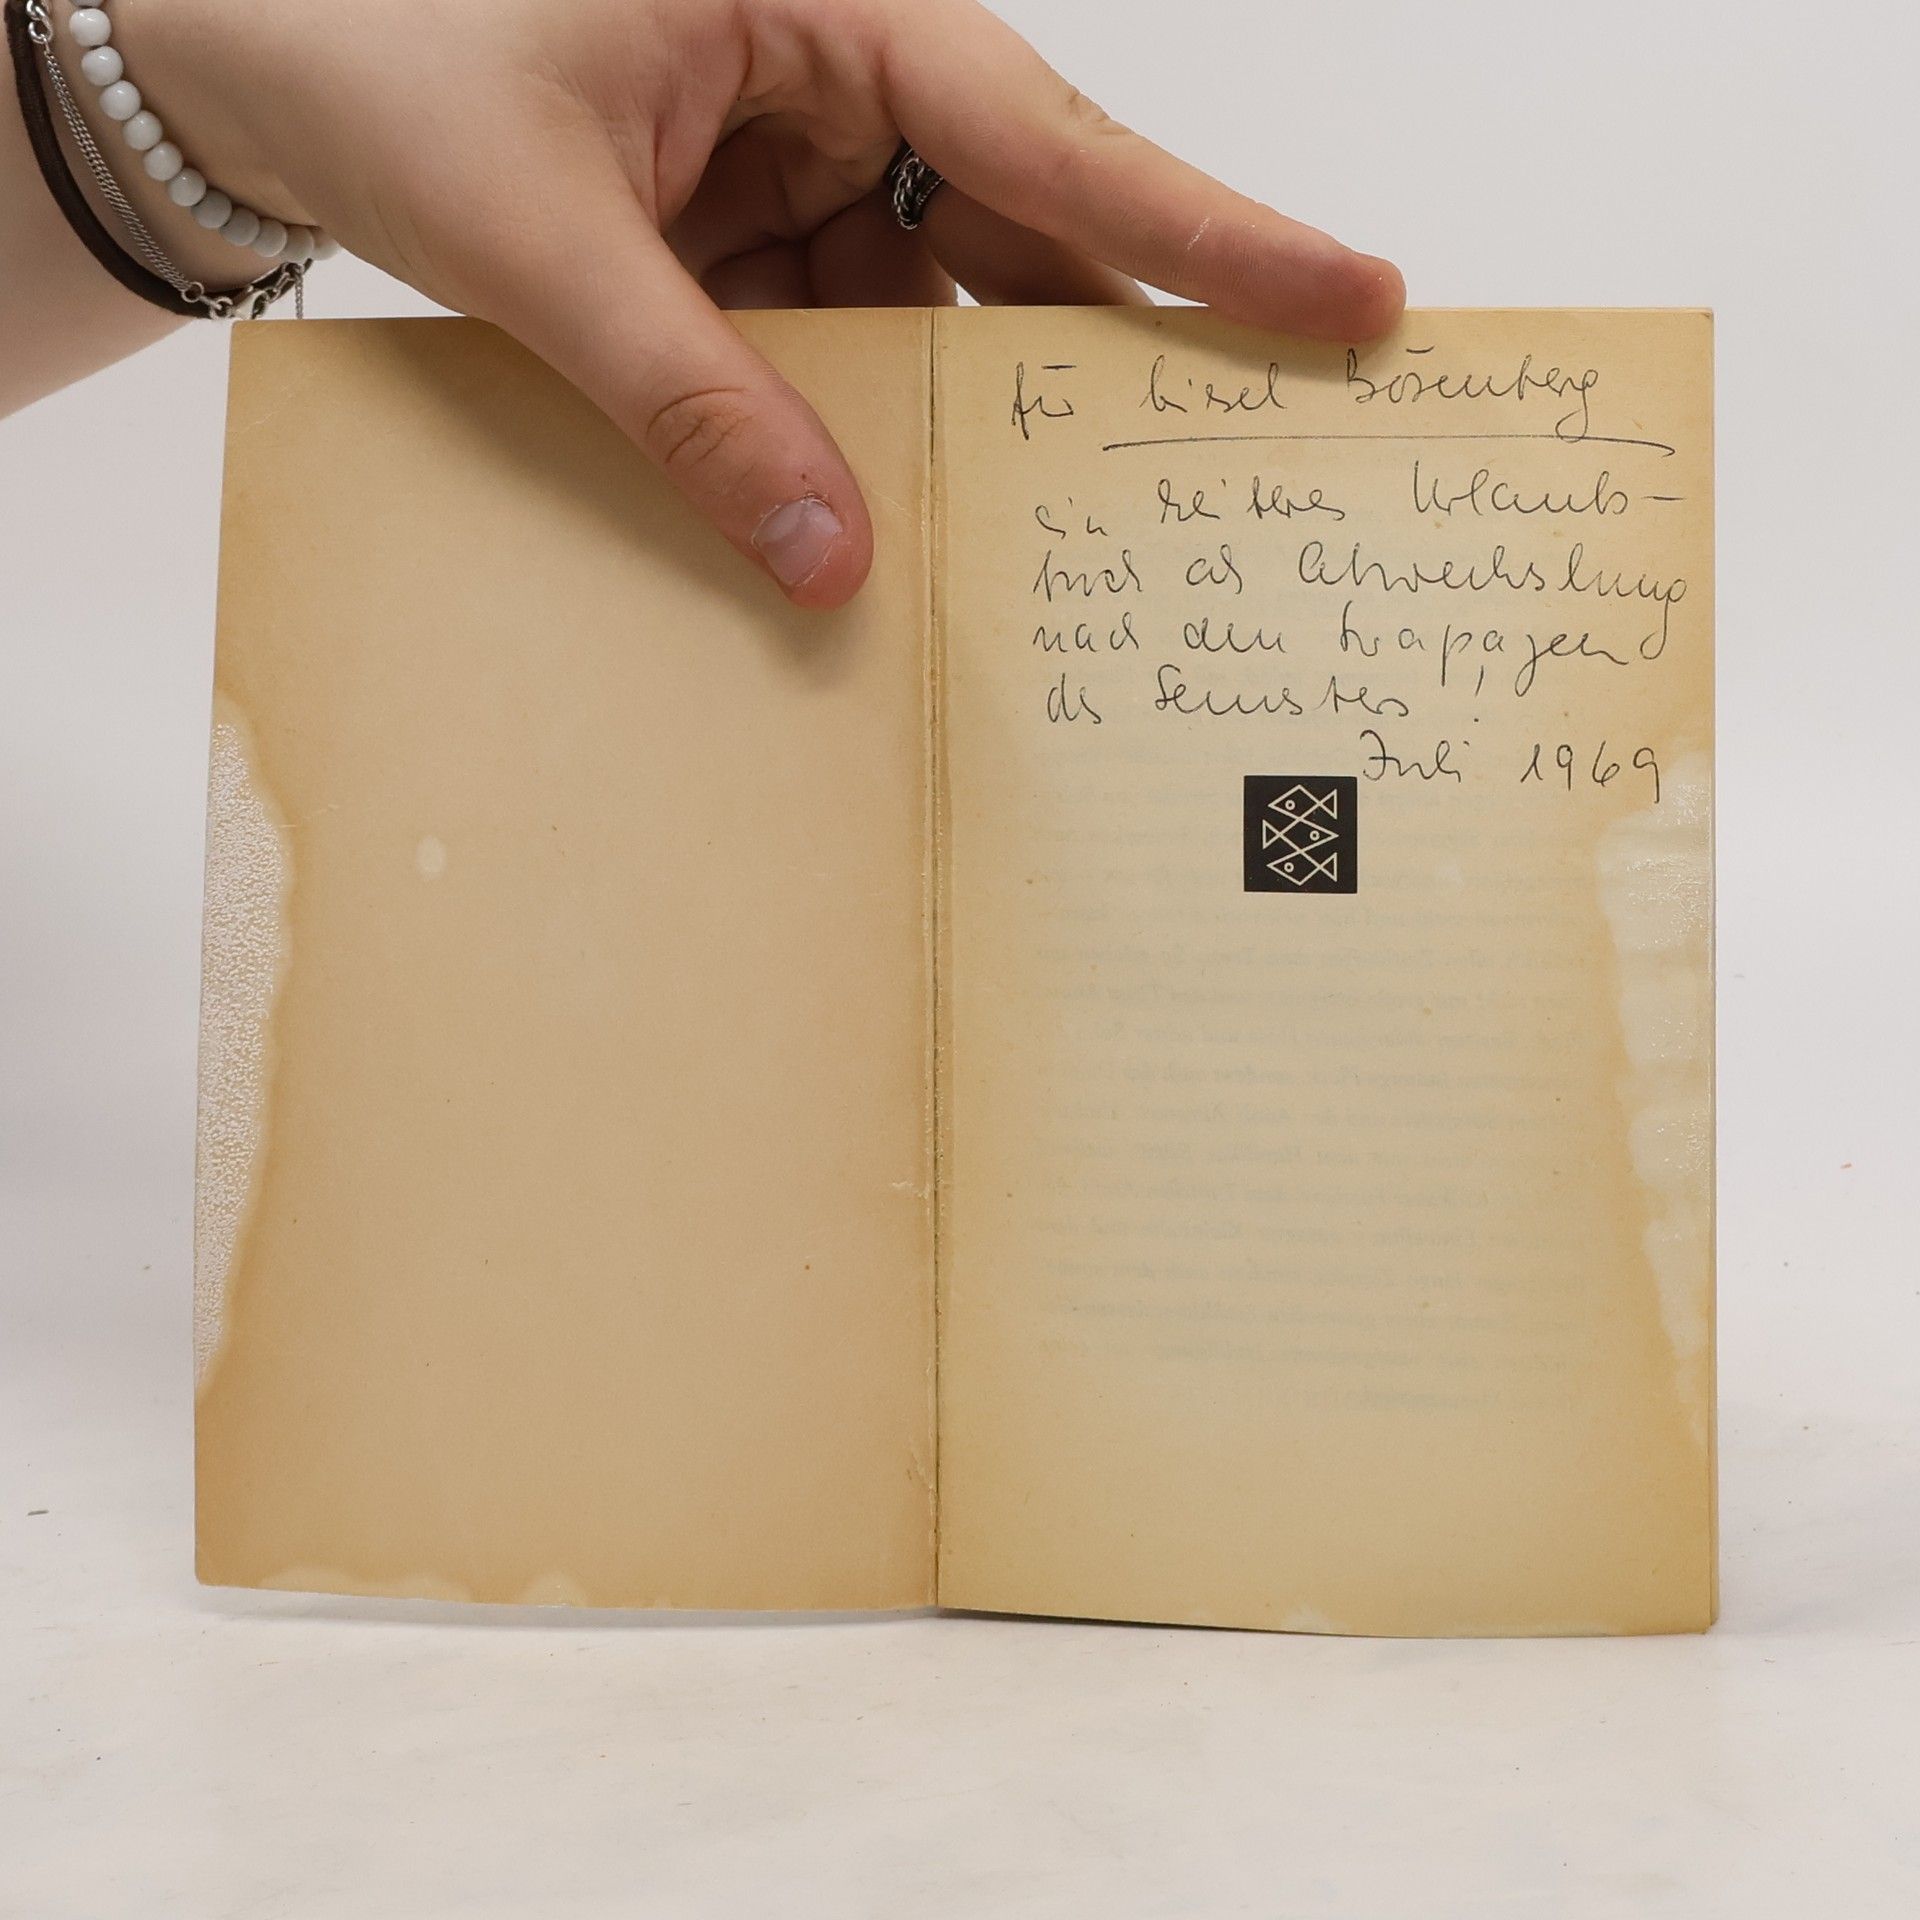 für Gisel Bösenberg
ein heiteres Urlaubs-
buch als Abwechslung
nach den Strapazen
des Semesters!
Juli 1969